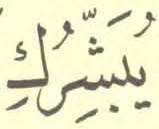 يُبَشِّرُكِ